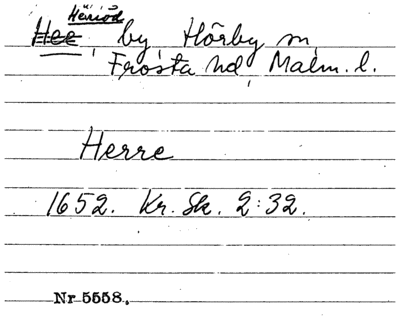 Heriod
Hee, by, Hörby sn,
Frosta hd, Malm. l.
Herre
1652. Kr. Sk. 2:32.
Nr 5558.